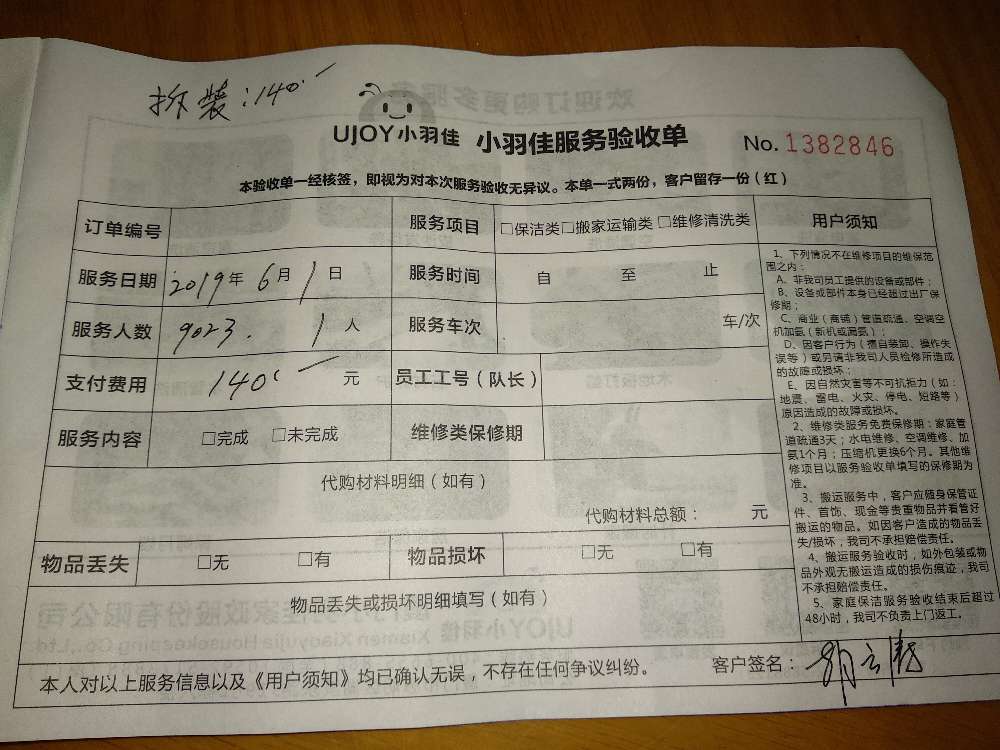 拆装:140.
UJOY小羽佳 小羽佳服务验收单 No. 1382846
本验收单一经核签，即视为对本次服务验收无异议。本单一式两份，客户留存一份（红）
订单编号 服务项目 □保洁类□搬家运输类□维修清洗类 用户须知
服务日期 2019年6月1日 服务时间 自 至 止
服务人数 9023. 1人 服务车次 车/次
支付费用 140 元 员工工号（队长）
服务内容 □完成 □未完成 维修类保修期
代购材料明细（如有）
代购材料总额： 元
物品丢失 □无 □有 物品损坏 □无 □有
物品丢失或损坏明细填写（如有）
1、下列情况不在维修项目的维保范
围之内：
A、非我司员工提供的设备或部件；
B、设备或部件本身已经超过出厂保
修期；
C、商业（商铺）管道疏通、空调空
机加氨（新机或漏氨）；
D、因客户行为（擅自装卸、操作失
误等）或另请非我司人员检修所造成
的故障或损坏；
E、因自然灾害等不可抗拒力（如：
地震、雷电、火灾、停电、短路等）
原因造成的故障或损坏。
2、维修类服务免费保修期：家庭管
道疏通3天；水电维修、空调维修、加
氨1个月；压缩机更换6个月。其他维
修项目以服务验收单填写的保修期为
准。
3、搬运服务中，客户应随身保管证
件、首饰、现金等贵重物品并看管好
搬运的物品。如因客户造成的物品丢
失/损坏，我司不承担赔偿责任。
4、搬运服务验收时，如外包装或物
品外观无搬运造成的损伤痕迹，我司
不承担赔偿责任。
5、家庭保洁服务验收结束后超过
48小时，我司不负责上门返工。
本人对以上服务信息以及《用户须知》均已确认无误，不存在任何争议纠纷。 客户签名：